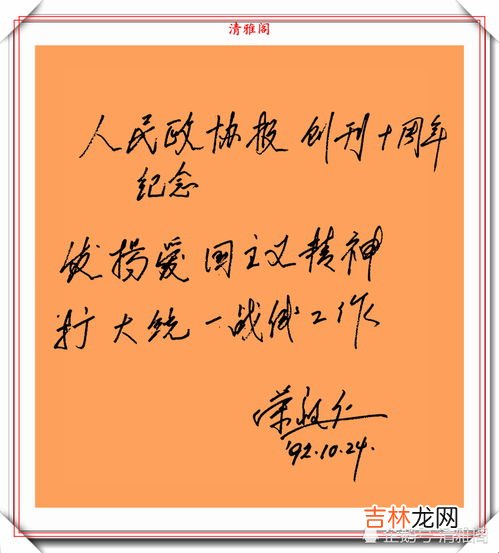 清雅阁
人民政协报 创刊十周年
纪念
发扬爱国主义精神
扩大统一战线工作
荣毅仁
'92.10.24.
吉林龙网
企鹅号 清雅阁